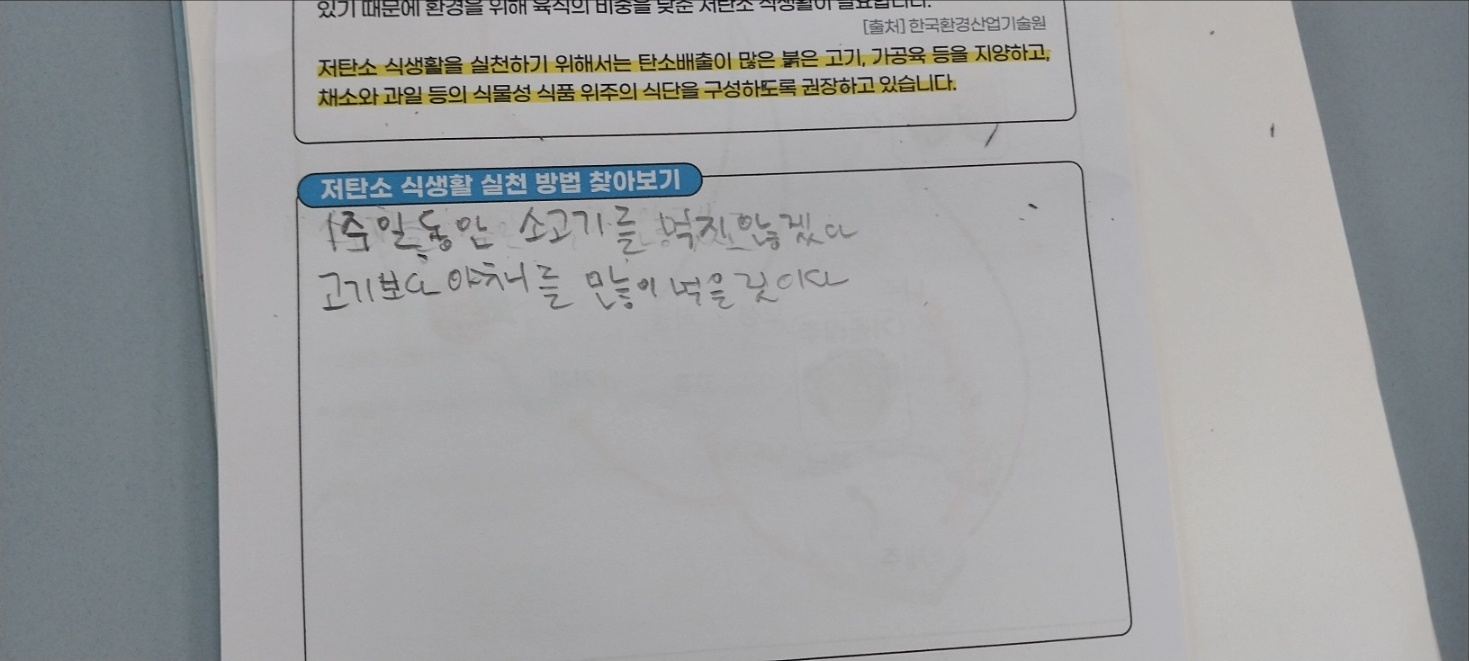 있기 때문에 환경을 위해 육식의 비중을 낮춘 저탄소 식생활이 필요합니다.
[출처] 한국환경산업기술원
저탄소 식생활을 실천하기 위해서는 탄소배출이 많은 붉은 고기, 가공육 등을 지양하고,
채소와 과일 등의 식물성 식품 위주의 식단을 구성하도록 권장하고 있습니다.
저탄소 식생활 실천 방법 찾아보기
1주일 동안 소고기를 먹지 않겠다
고기보다 야채를 많이 먹을 것이다